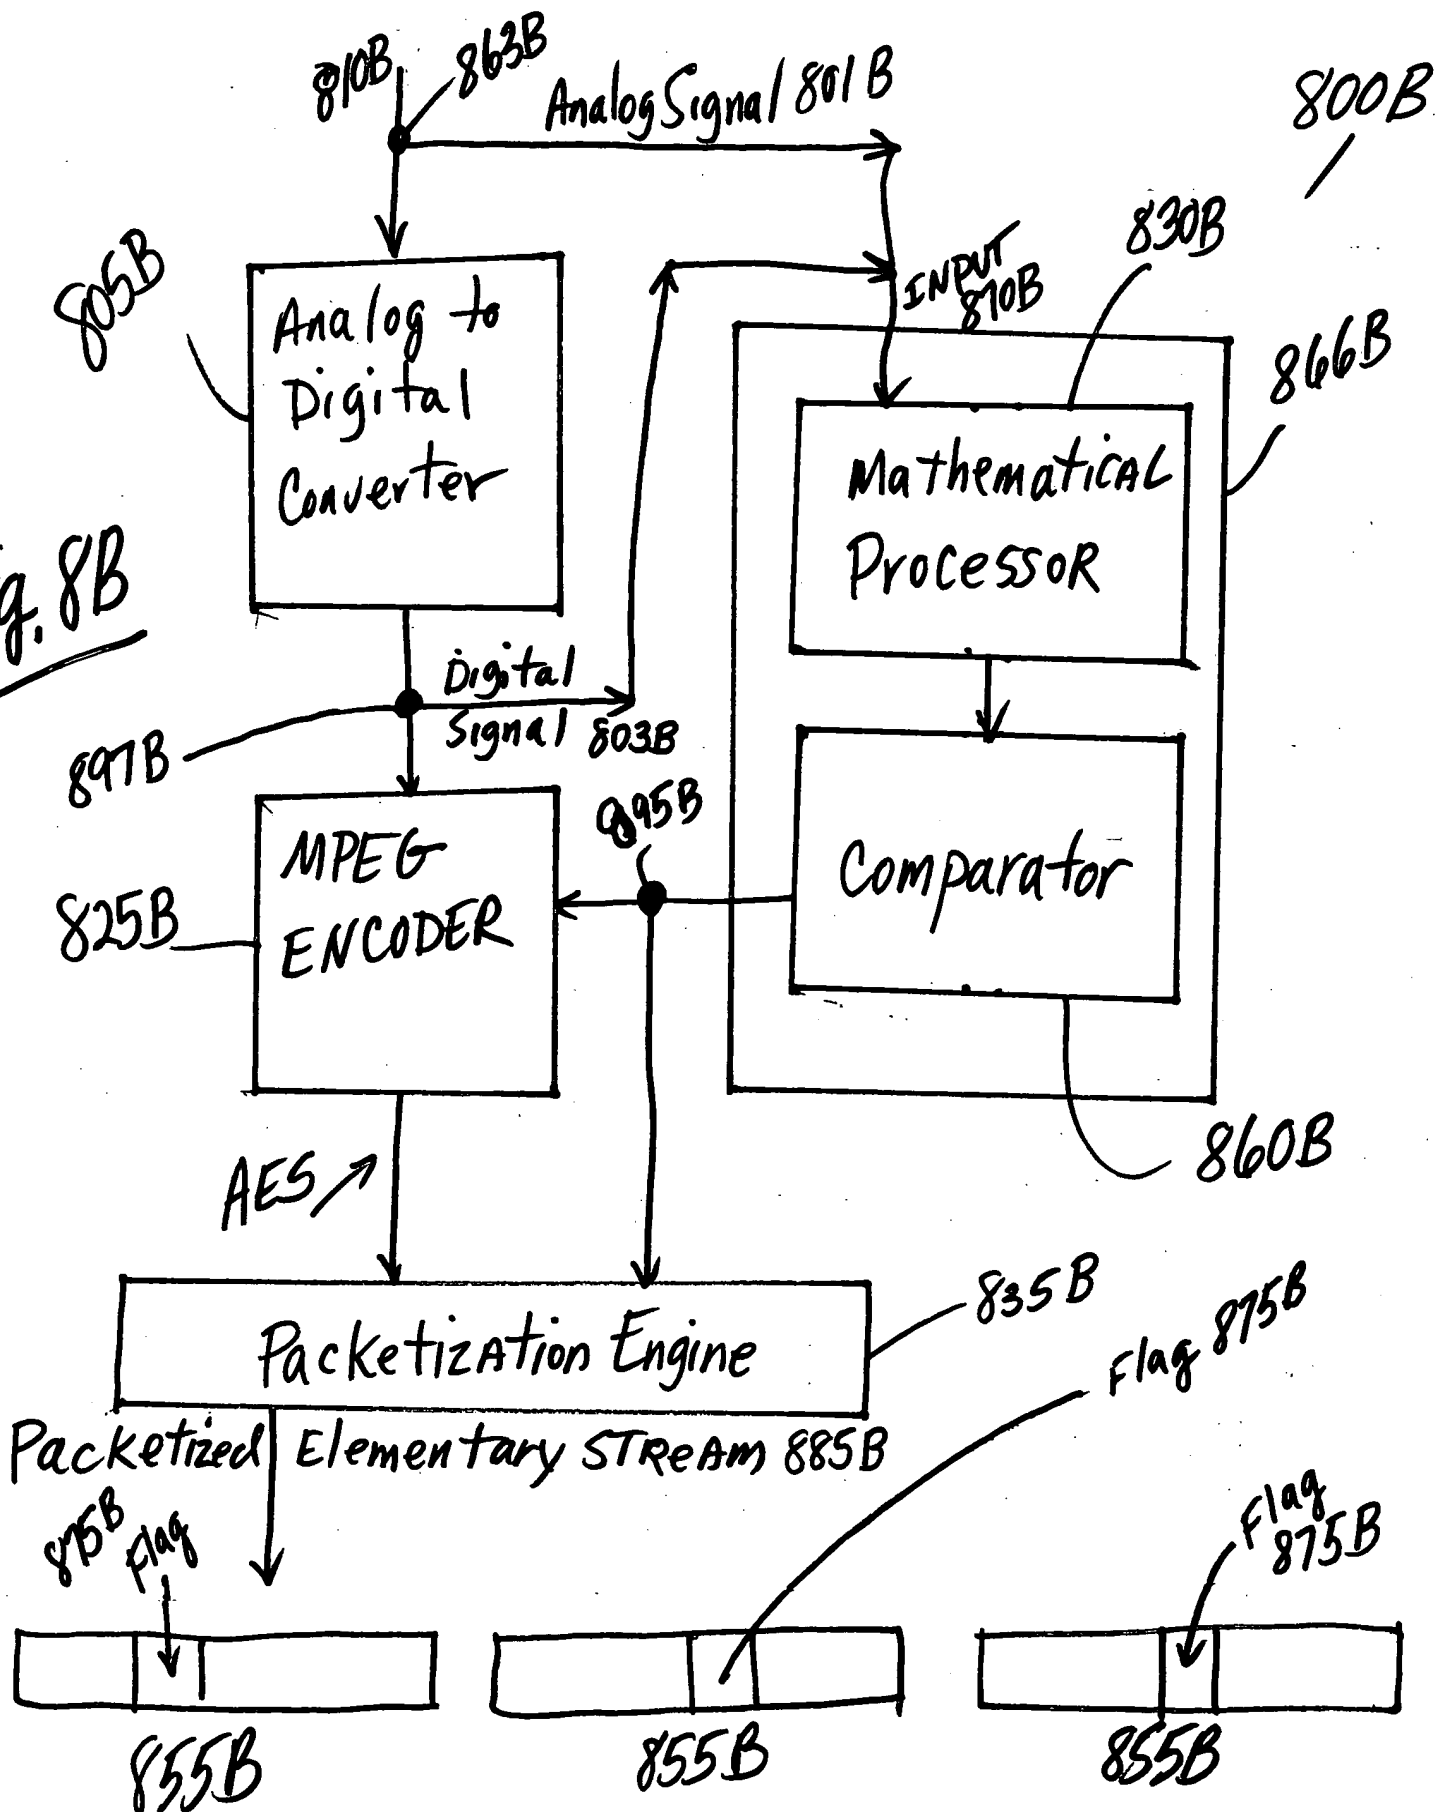 810B
863B
Analog Signal 801B
800B
805B
Analog to
Digital
Converter
INPUT
870B
830B
866B
Mathematical
Processor
g. 8B
Digital
Signal 803B
897B
895B
MPEG
ENCODER
825B
Comparator
860B
AES
835B
Packetization Engine
Flag 875B
Packetized Elementary Stream 885B
875B
Flag
Flag
875B
855B
855B
855B